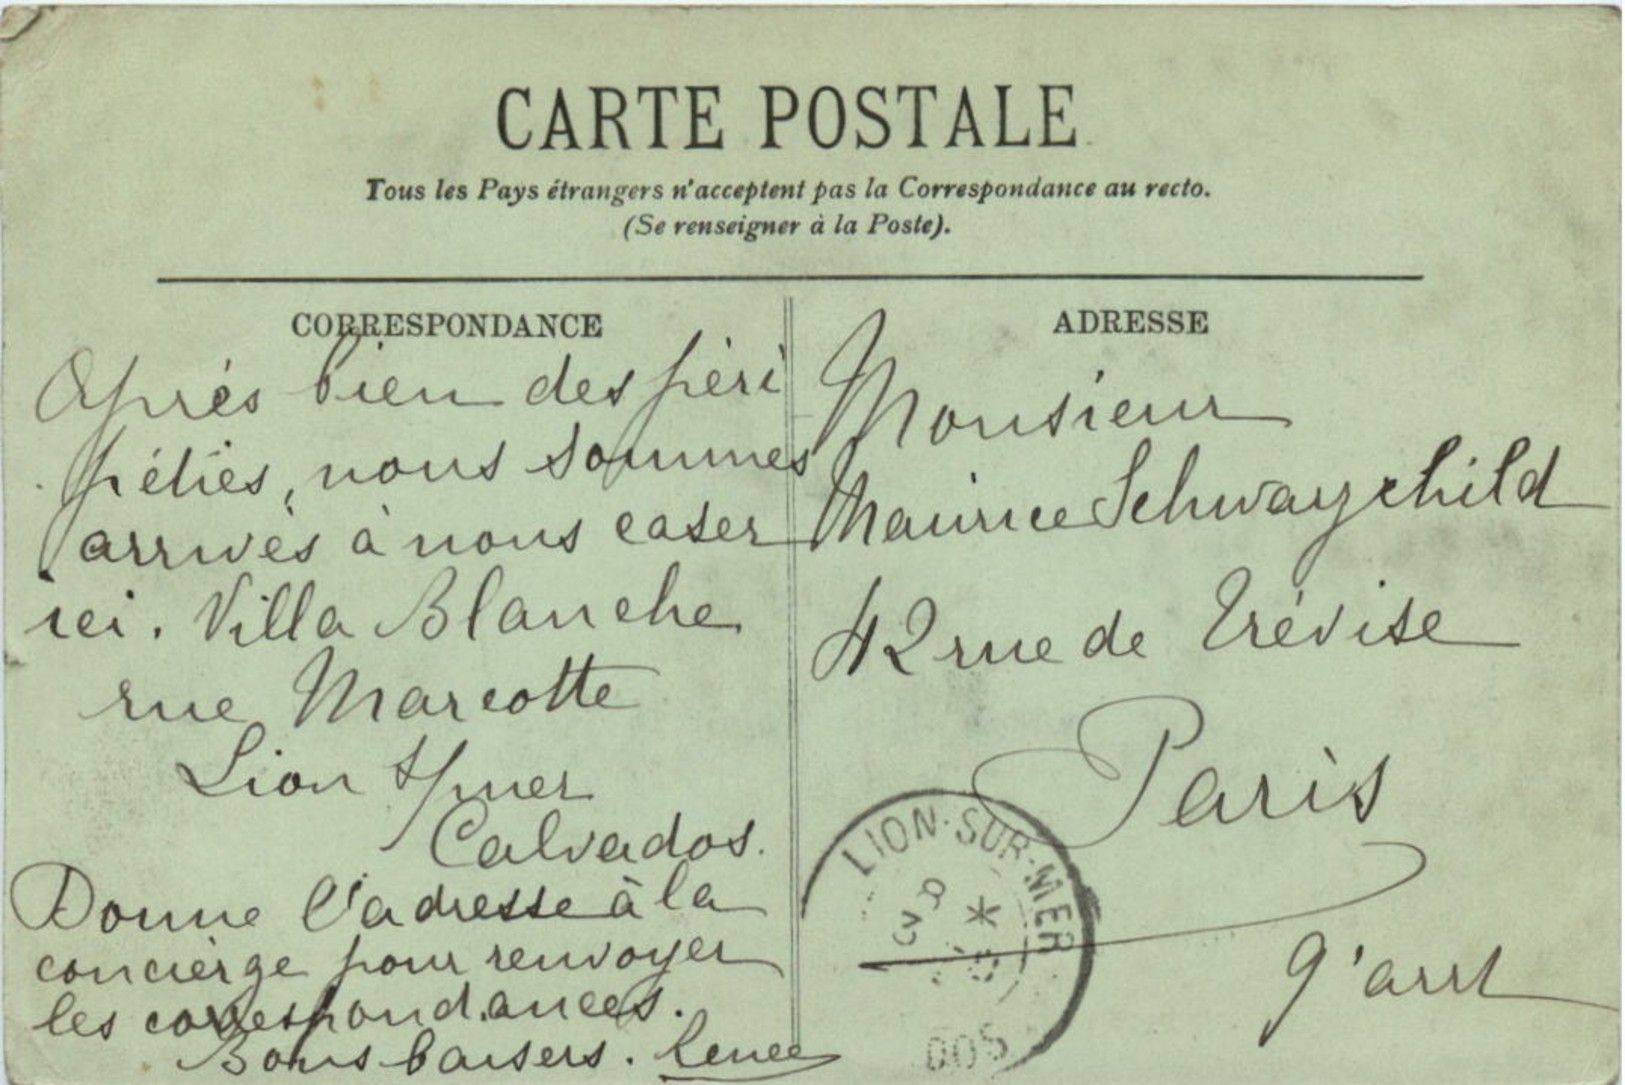 CARTE POSTALE
Tous les Pays étrangers n'acceptent pas la Correspondance au recto.
(Se renseigner à la Poste).
CORRESPONDANCE
Après bien des péri
péties, nous sommes
arrivés à nous caser
ici. Villa Blanche
rue Marcotte
Lion s/mer
Calvados.
Donne l'adresse à la
concierge pour renvoyer
les correspondances.
Bons baisers. Renée
ADRESSE
Monsieur
Maurice Schwarzchild
42 rue de Trévise
Paris
9'arrt
LION-SUR-MER